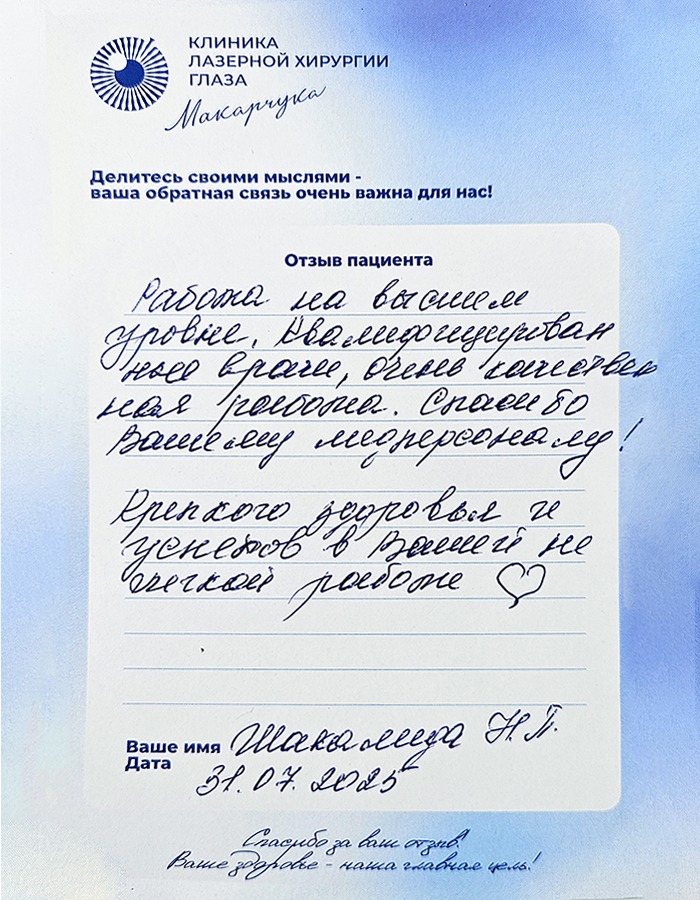 КЛИНИКА
ЛАЗЕРНОЙ ХИРУРГИИ
ГЛАЗА
Макарчука
Делитесь своими мыслями -
ваша обратная связь очень важна для нас!
Отзыв пациента
Работа на высшем
уровне. Квалифицирован
ные врачи, очень качествен
ная работа. Спасибо
Вашему медперсоналу!
Крепкого здоровья и
успехов в Вашей не
легкой работе ♡
Ваше имя Шакалида Н.П.
Дата 31.07.2025
Спасибо за ваш отзыв!
Ваше здоровье - наша главная цель!